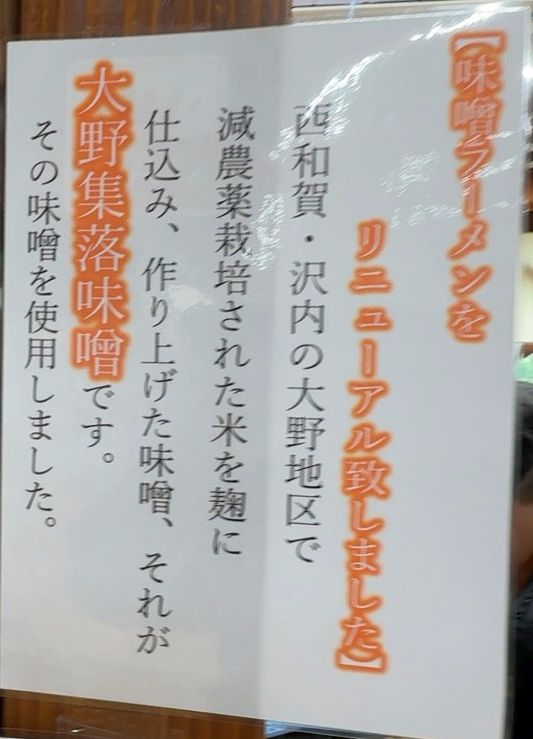 【味噌ラーメンを
リニューアル致しました】
西和賀・沢内の大野地区で
減農薬栽培された米を麹に
仕込み、作り上げた味噌、それが
大野集落味噌です。
その味噌を使用しました。